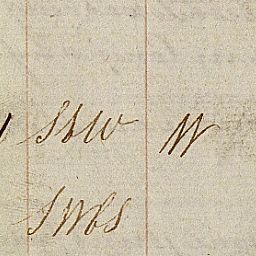 SbW W
SWbS